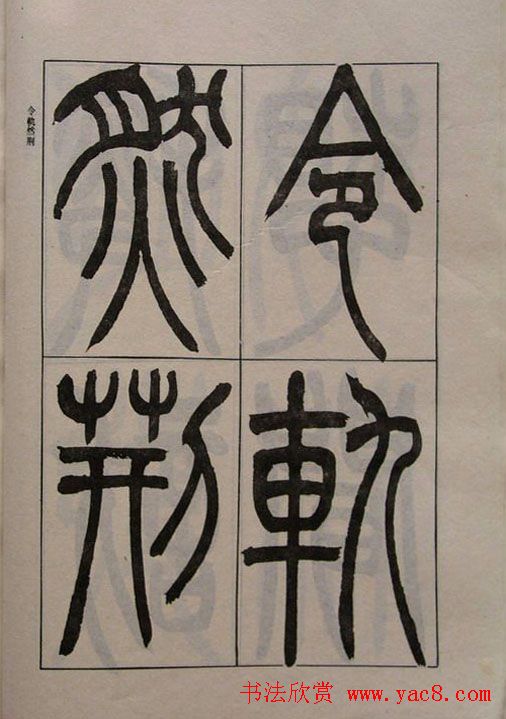 令軌
然荆
令軌然荆
书法欣赏 www.yac8.com